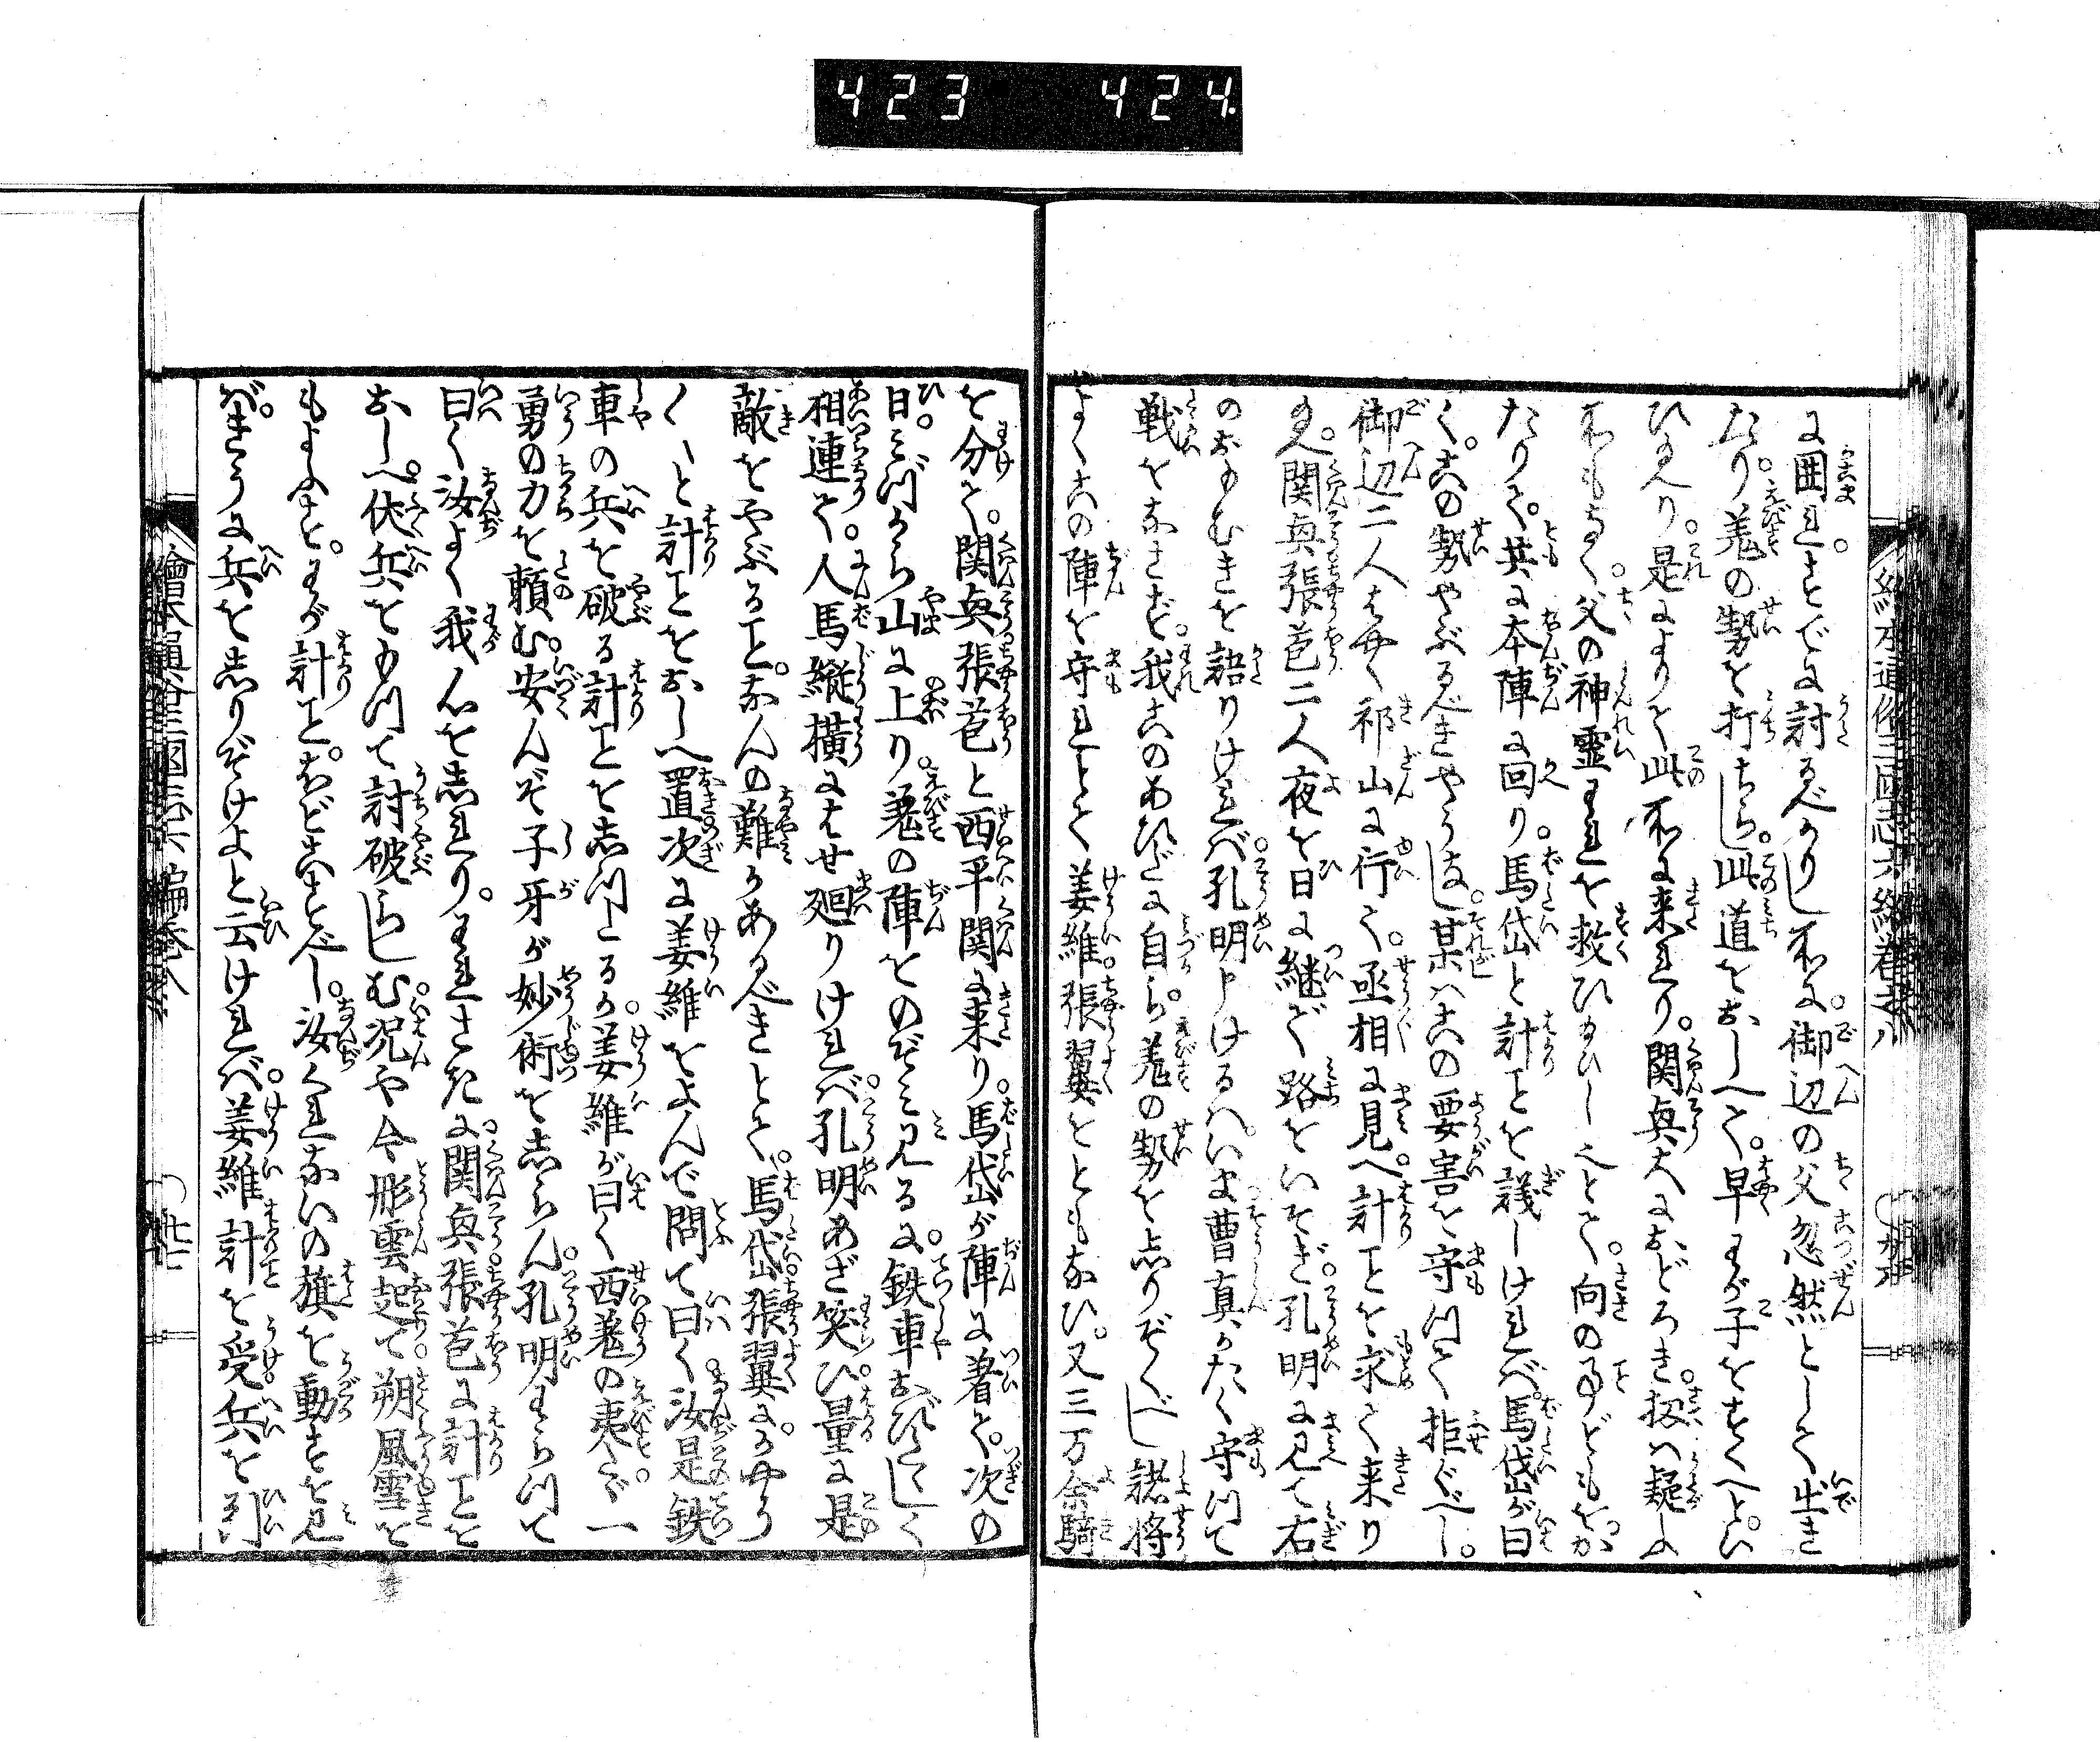 423 424
に囲れ。すでに討るべかりし所に。御辺の父忽然として出き
たり。羌の勢を打ちらし。此道をおしへて。早くわが子をすくへとい
ひたり。是によりて此所に来れり。関興大におどろき。扨は疑ふ
所もなく。父の神霊われを救ひたひしことて。向の事どもをか
たりて。共に本陣に回り。馬岱と計ことを議しければ。馬岱が曰
く。この勢やぶるべきやうなし。某はこの要害を守つて拒ぐべし。
御辺二人はやく祁山に行て。丞相に見へ計ことを求て来り
たまへ。関興張苞二人夜を日に継で路をいそぎ。孔明に見て右
のおもむきを語りければ。孔明申けるは。いま曹真かたく守つて
戦をなさず。我このあひだに自ら。羌の勢を志りぞくべし諸将
よくこの陣を守れとて姜維。張翼をともなひ。又三万余騎
を分て。関興張苞と西平関に来り。馬岱が陣に着て。次の
日。みづから山に上り。羌の陣をのぞみ見るに。鉄車おびたゝしく
相連て。人馬縦横にはせ廻りければ。孔明あざ笑ひ。量に是
敵をやぶること。なんの難かあるべきとて。馬岱張翼に。かやう
〱と計ことをおしへ置次に姜維をよんで問て曰く。汝是鉄
車の兵を破る計ことを志つたるか。姜維が曰く西羌の夷。たゞ一
勇の力を頼む。安んぞ子牙が妙術を志らん。孔明わらつて
曰く汝よく我心を志れり。われさきに。関興張苞に計ことを
おしへ。伏兵をもつて討破らしむ。況や今彤雲起て。朔風雪を
もよふす。わが計こと。ほどこすべし。汝くれないの旗を動すを見
ば。きうに兵を志りぞけよと云ければ。姜維計を受。兵を引